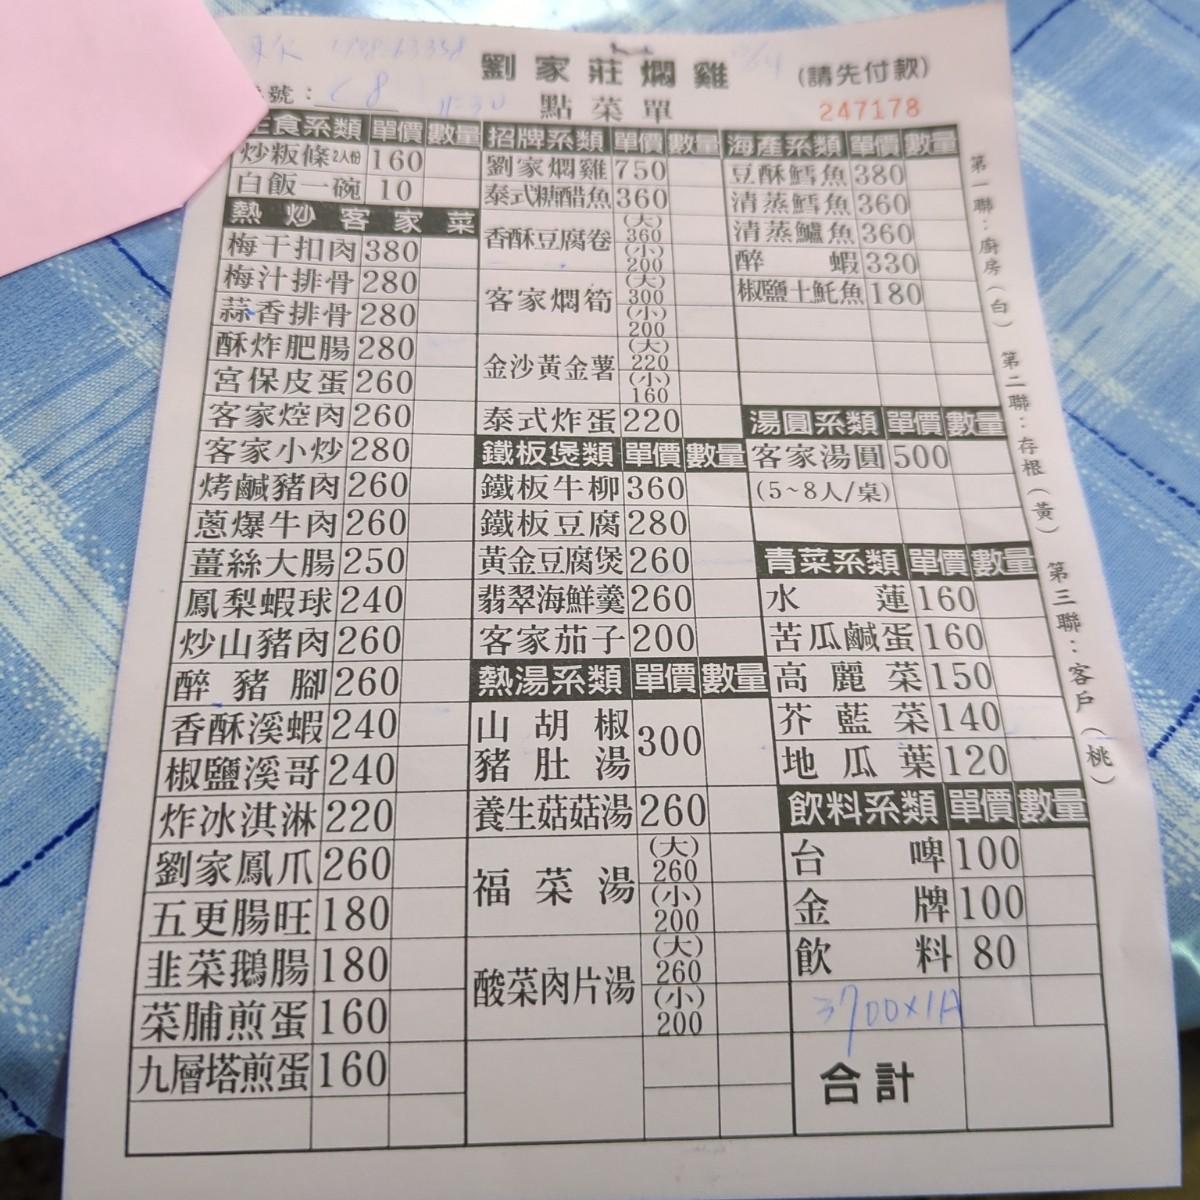 劉家莊燜雞
(請先付款)
號：
點菜單
247178
主食系類 單價 數量
炒粄條 2人份 160
白飯一碗 10
熱炒客家菜
梅干扣肉 380
梅汁排骨 280
蒜香排骨 280
酥炸肥腸 280
宮保皮蛋 260
客家焢肉 260
客家小炒 280
烤鹹豬肉 260
蔥爆牛肉 260
薑絲大腸 250
鳳梨蝦球 240
炒山豬肉 260
醉豬腳 260
香酥溪蝦 240
椒鹽溪哥 240
炸冰淇淋 220
劉家鳳爪 260
五更腸旺 180
韭菜鵝腸 180
菜脯煎蛋 160
九層塔煎蛋 160
招牌系類 單價 數量
劉家燜雞 750
泰式糖醋魚 360
香酥豆腐卷 (大) 360 (小) 200
客家燜筍 (大) 300 (小) 200
金沙黃金薯 (大) 220 (小) 160
泰式炸蛋 220
鐵板煲類 單價 數量
鐵板牛柳 360
鐵板豆腐 280
黃金豆腐煲 260
翡翠海鮮羹 260
客家茄子 200
熱湯系類 單價 數量
山胡椒
豬肚湯 300
養生菇菇湯 260
福菜湯 (大) 260 (小) 200
酸菜肉片湯 (大) 260 (小) 200
海產系類 單價 數量
豆酥鱈魚 380
清蒸鱈魚 360
清蒸鱸魚 360
醉蝦 330
椒鹽土魠魚 180
湯圓系類 單價 數量
客家湯圓 500
(5~8人/桌)
青菜系類 單價 數量
水蓮 160
苦瓜鹹蛋 160
高麗菜 150
芥藍菜 140
地瓜葉 120
飲料系類 單價 數量
台啤 100
金牌 100
飲料 80
3700×1A
合計
第一聯：廚房（白）
第二聯：存根（黃）
第三聯：客戶（桃）